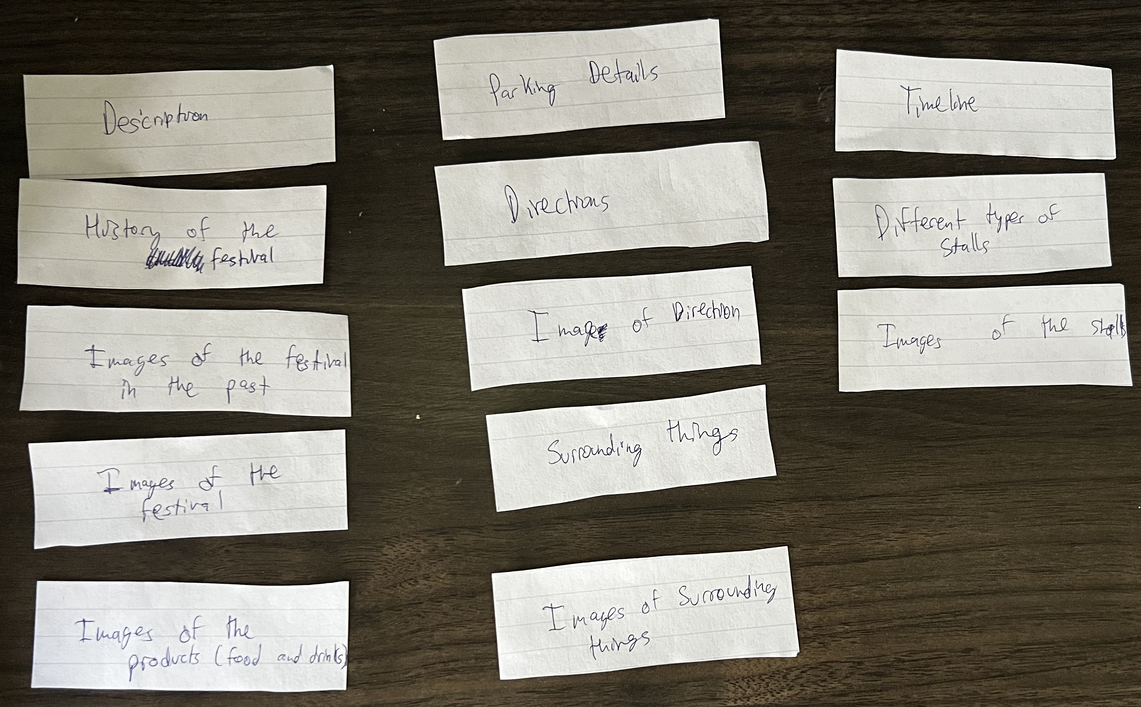 Description
History of the
festival
Images of the festival
in the past
Images of the
festival
Images of the
products (food and drinks)
Parking Details
Directions
Image of Direction
Surrounding things
Images of Surrounding
things
Timeline
Different types of
Stalls
Images of the stalls